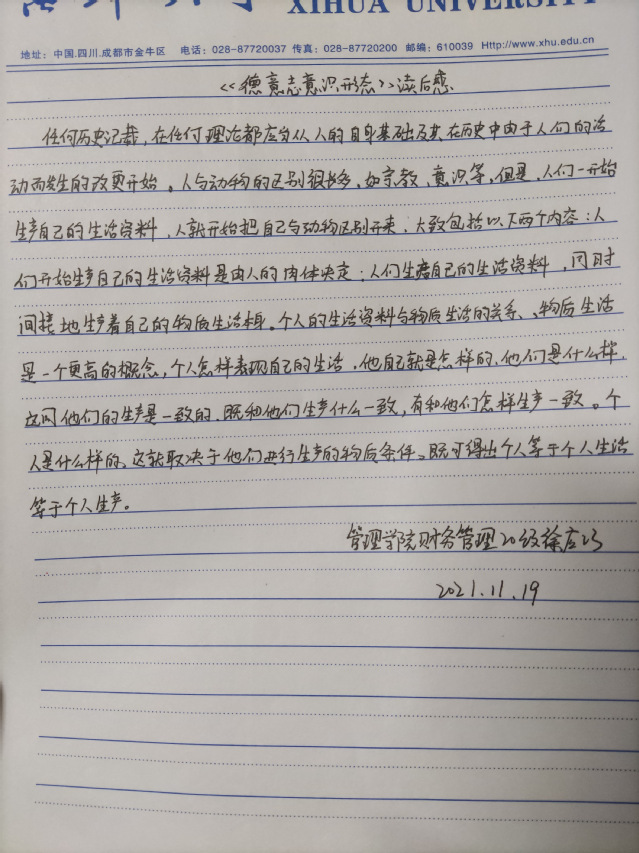 XIHUA UNIVERSITY
地址：中国.四川.成都市金牛区 电话：028-87720037 传真：028-87720200 邮编：610039 Http://www.xhu.edu.cn
《德意志意识形态》读后感
任何历史记载，在任何理论都应当从人的自身基础及其在历史中由于人们的活
动而发生的改变开始。人与动物的区别很多，如宗教、意识等，但是，人们一开始
生产自己的生活资料，人就开始把自己与动物区别开来，大致包括以下两个内容：人
们开始生产自己的生活资料是由人的肉体决定；人们生产自己的生活资料，同时
间接地生产着自己的物质生活本身。个人的生活资料与物质生活的关系、物质生活
是一个更高的概念，个人怎样表现自己的生活，他自己就是怎样的，他们是什么样，
这同他们的生产是一致的，既和他们生产什么一致，有和他们怎样生产一致。个
人是什么样的，这就取决于他们进行生产的物质条件。既可得出个人等于个人生活
等于个人生产。
管理学院财务管理20级徐
2021.11.19